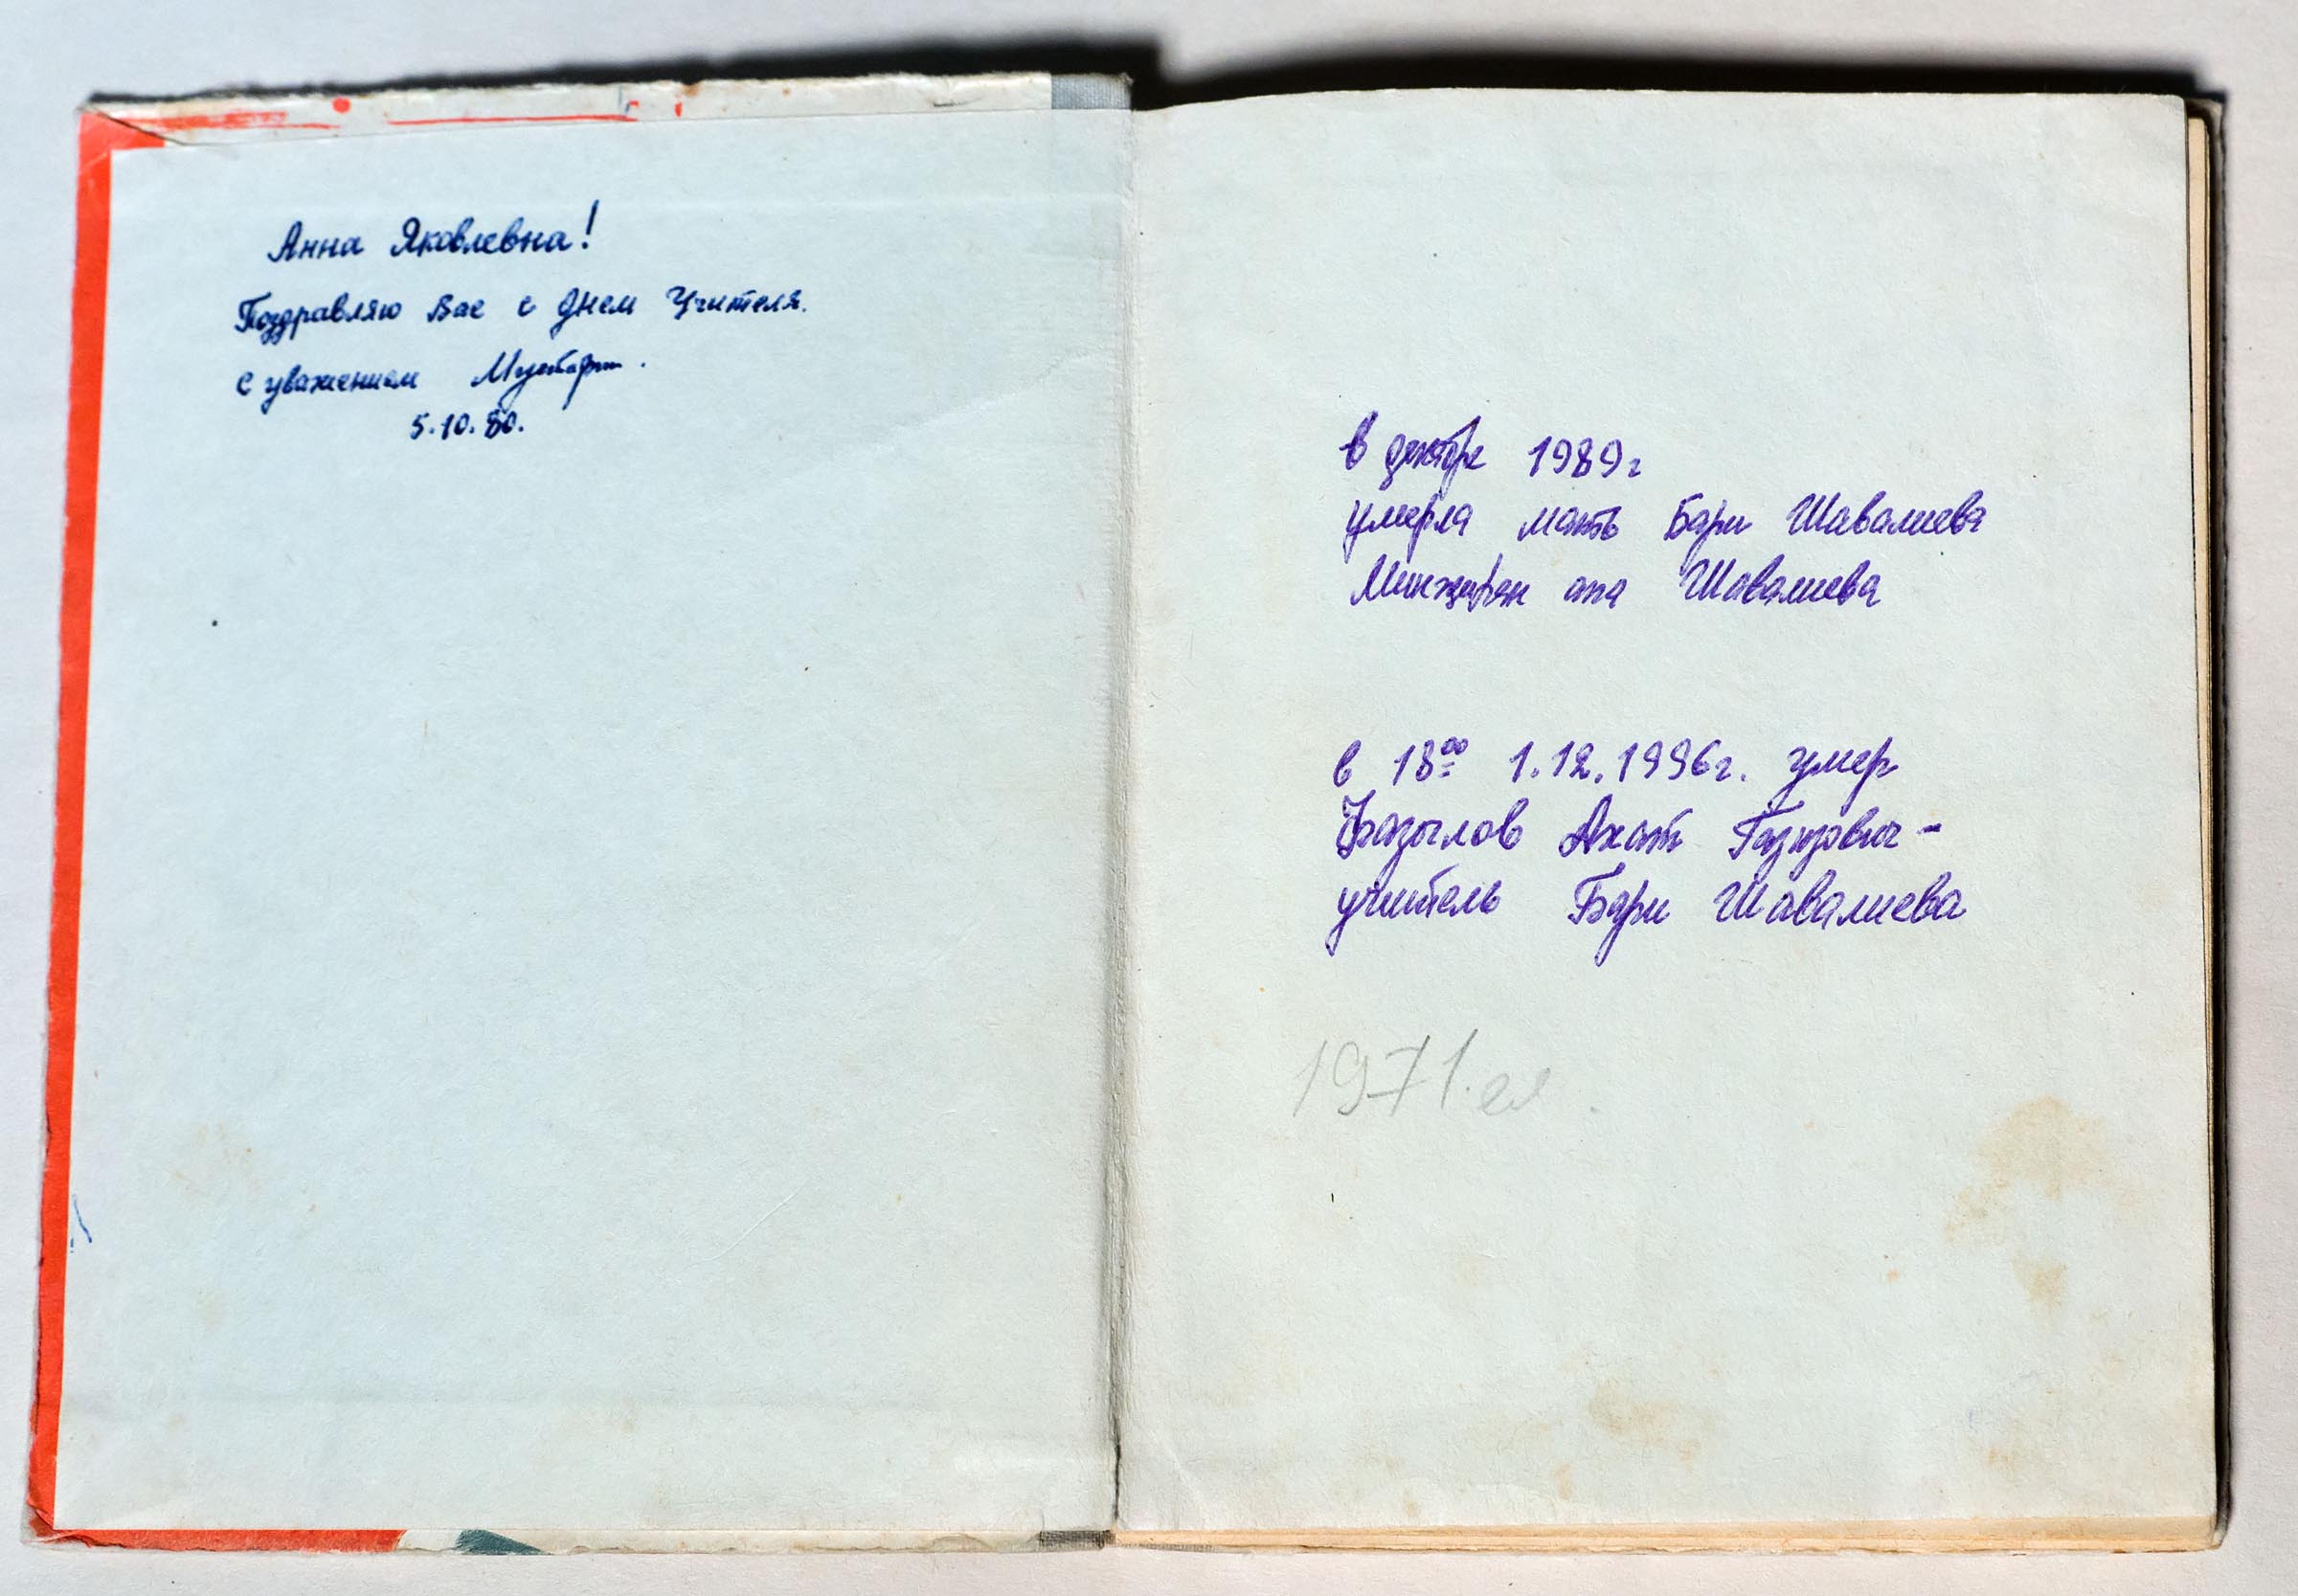 Анна Яковлевна!
Поздравляю Вас с днем Учителя.
С уважением
5.10.80.
В декабре 1989г
умерла мать Бари Шавалиева
апа Шавалиева
в 18⁰⁰ 1.12.1996г. умер
Фазылов Ахат –
учитель Бари Шавалиева
1971.